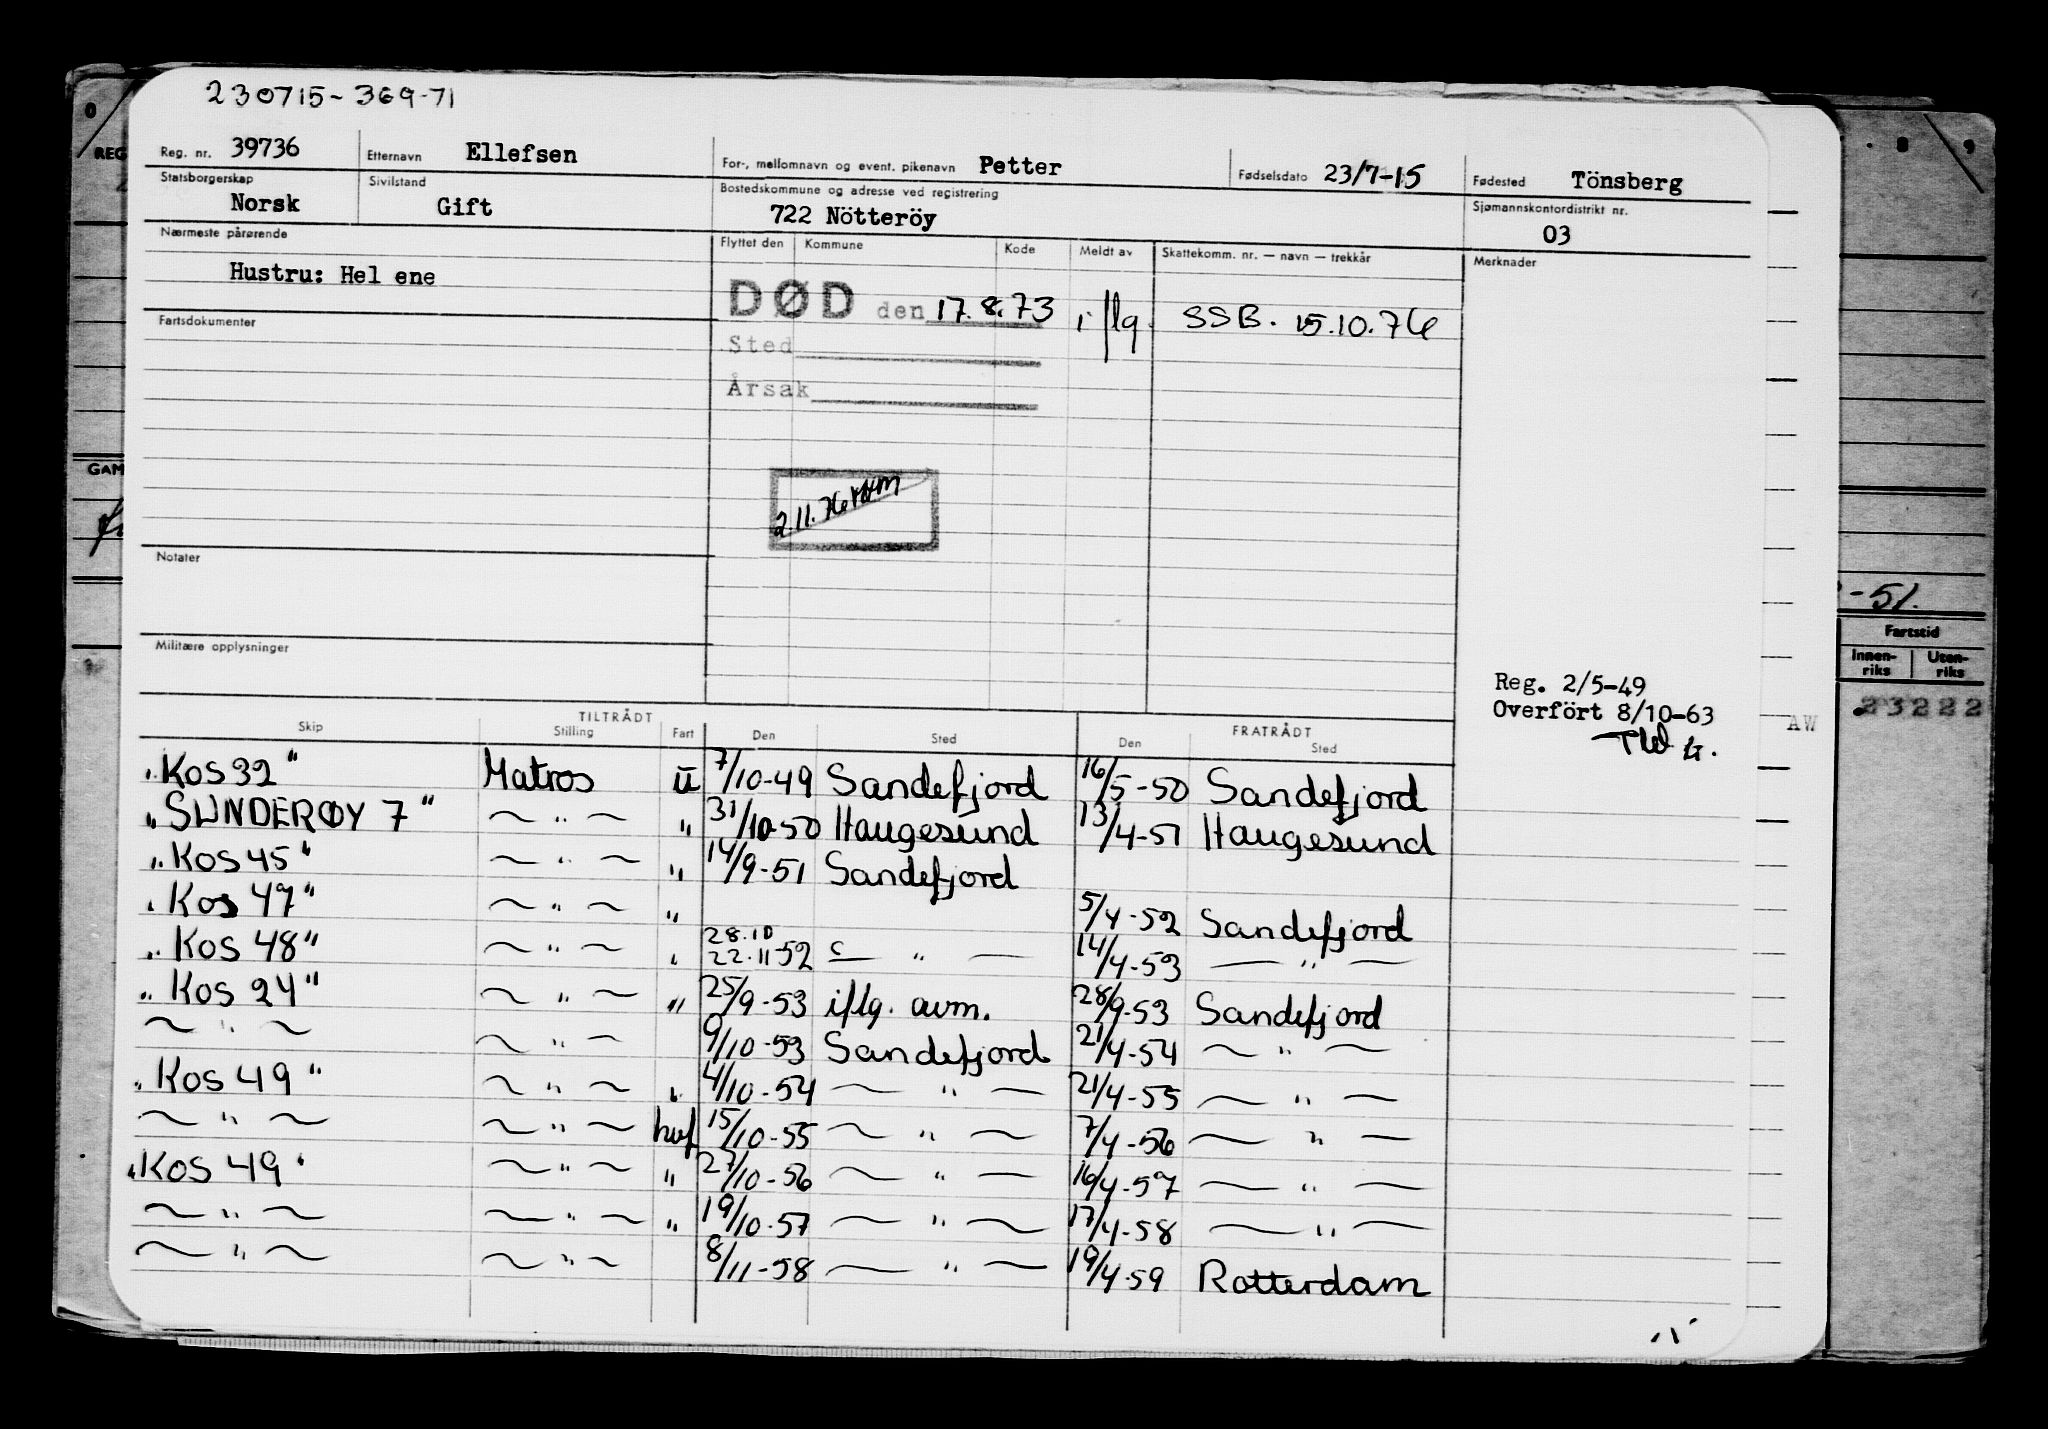 230715-369-71
Reg. nr. 39736 Etternavn Ellefsen For-, mellomnavn og event. pikenavn Petter Fødselsdato 23/7-15 Fødested Tönsberg
Statsborgerskap Norsk Sivilstand Gift Bostedskommune og adresse ved registrering 722 Nötteröy Sjømannskontordistrikt nr. 03
Nærmeste pårørende Flyttet den Kommune Kode Meldt av Skattekomm. nr. — navn — trekkår Merknader
Hustru: Hel ene
DØD den 17.8.73 iflg. SSB. 15.10.76
Fartsdokumenter
Sted
Årsak
GAM
2.11.76
Notater
-51.
Fartstid
Innen-riks Uten-riks
Militære opplysninger
Reg. 2/5-49
Overfört 8/10-63
23222
AW
TILTRÅDT FRATRÅDT
Skip Stilling Fart Den Sted Den Sted
"Kos 32" Matros U 7/10-49 Sandefjord 16/5-50 Sandefjord
"SUNDERØY 7" — " — " 31/10-50 Haugesund 13/4-51 Haugesund
"Kos 45" — " — " 14/9-51 Sandefjord
"Kos 47" — " — " 5/4-52 Sandefjord
"Kos 48" — " — " 28.10 22.11-52 — " — 14/4-53 — " —
"Kos 24" — " — " 25/9-53 iflg. avm. 28/9-53 Sandefjord
— " — — " — 9/10-53 Sandefjord 21/4-54 — " —
"Kos 49" — " — " 4/10-54 — " — 21/4-55 — " —
— " — — " — hvf 15/10-55 — " — 7/4-56 — " —
"Kos 49" — " — " 27/10-56 — " — 16/4-57 — " —
— " — — " — " 19/10-57 — " — 17/4-58 — " —
— " — — " — 8/11-58 — " — 19/4-59 Rotterdam